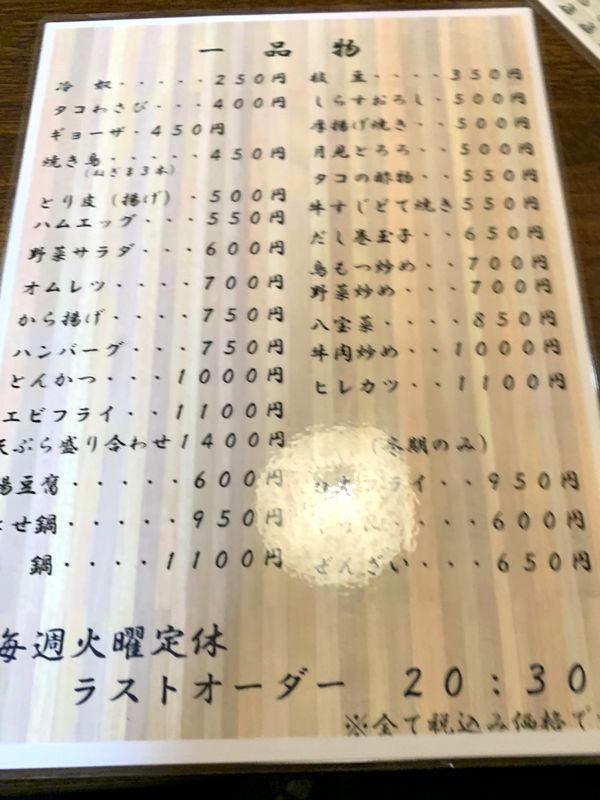 一品物
冷奴・・・・・250円
タコわさび・・・400円
ギョーザ・450円
焼き鳥・・・・・450円
(ねぎま3本)
とり皮(揚げ)・500円
ハムエッグ・・・550円
野菜サラダ・・・600円
オムレツ・・・・700円
から揚げ・・・・750円
ハンバーグ・・・750円
とんかつ・・・1000円
エビフライ・・1100円
天ぷら盛り合わせ1400円
湯豆腐・・・・・600円
せ鍋・・・・・950円
鍋・・・・1100円
枝豆・・・・350円
しらすおろし・500円
厚揚げ焼き・・500円
月見とろろ・・500円
タコの酢物・・550円
牛すじどて焼き550円
だし巻玉子・・650円
鳥もつ炒め・・700円
野菜炒め・・・700円
八宝菜・・・・850円
牛肉炒め・・1000円
ヒレカツ・・1100円
(冬期のみ)
フライ・・950円
・・・・600円
ぜんざい・・・650円
毎週火曜定休
ラストオーダー 20:30
※全て税込み価格で